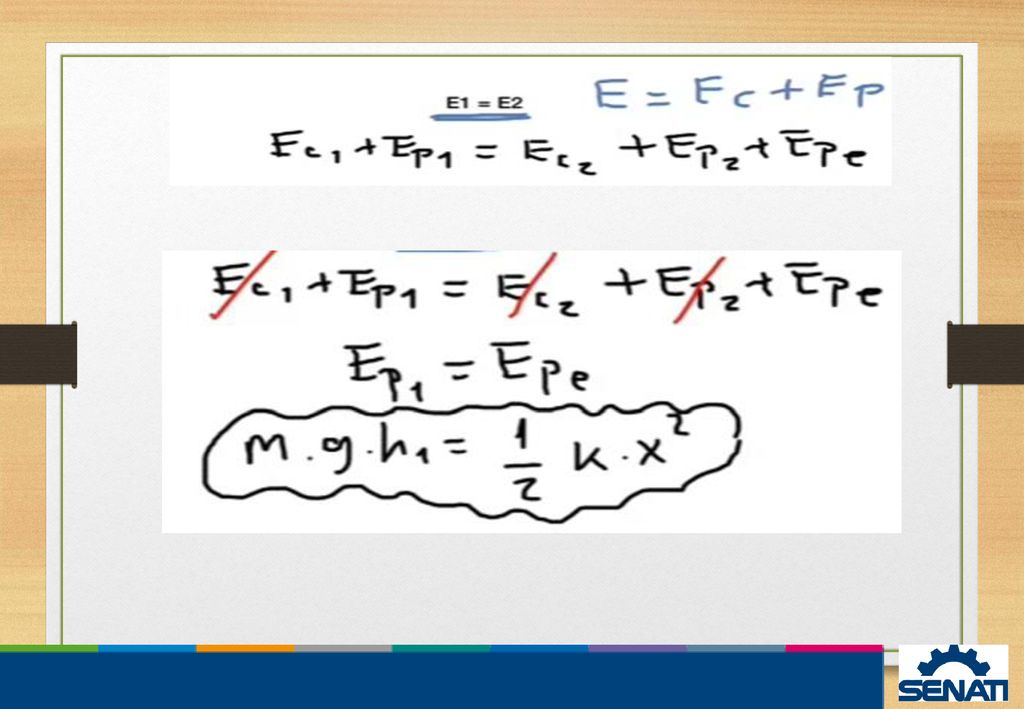 E1 = E2 E = Ec + EP
Ec1 + Ep1 = Ec2 + Ep2 + Epe
Ec1 + Ep1 = Ec2 + Ep2 + Epe
Ep1 = Epe
m.g.h1 = 1/2 k.x²
SENATI